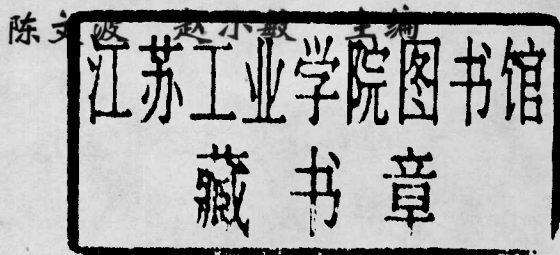 陈文波 赵小敏 主编
江苏工业学院图书馆
藏书章